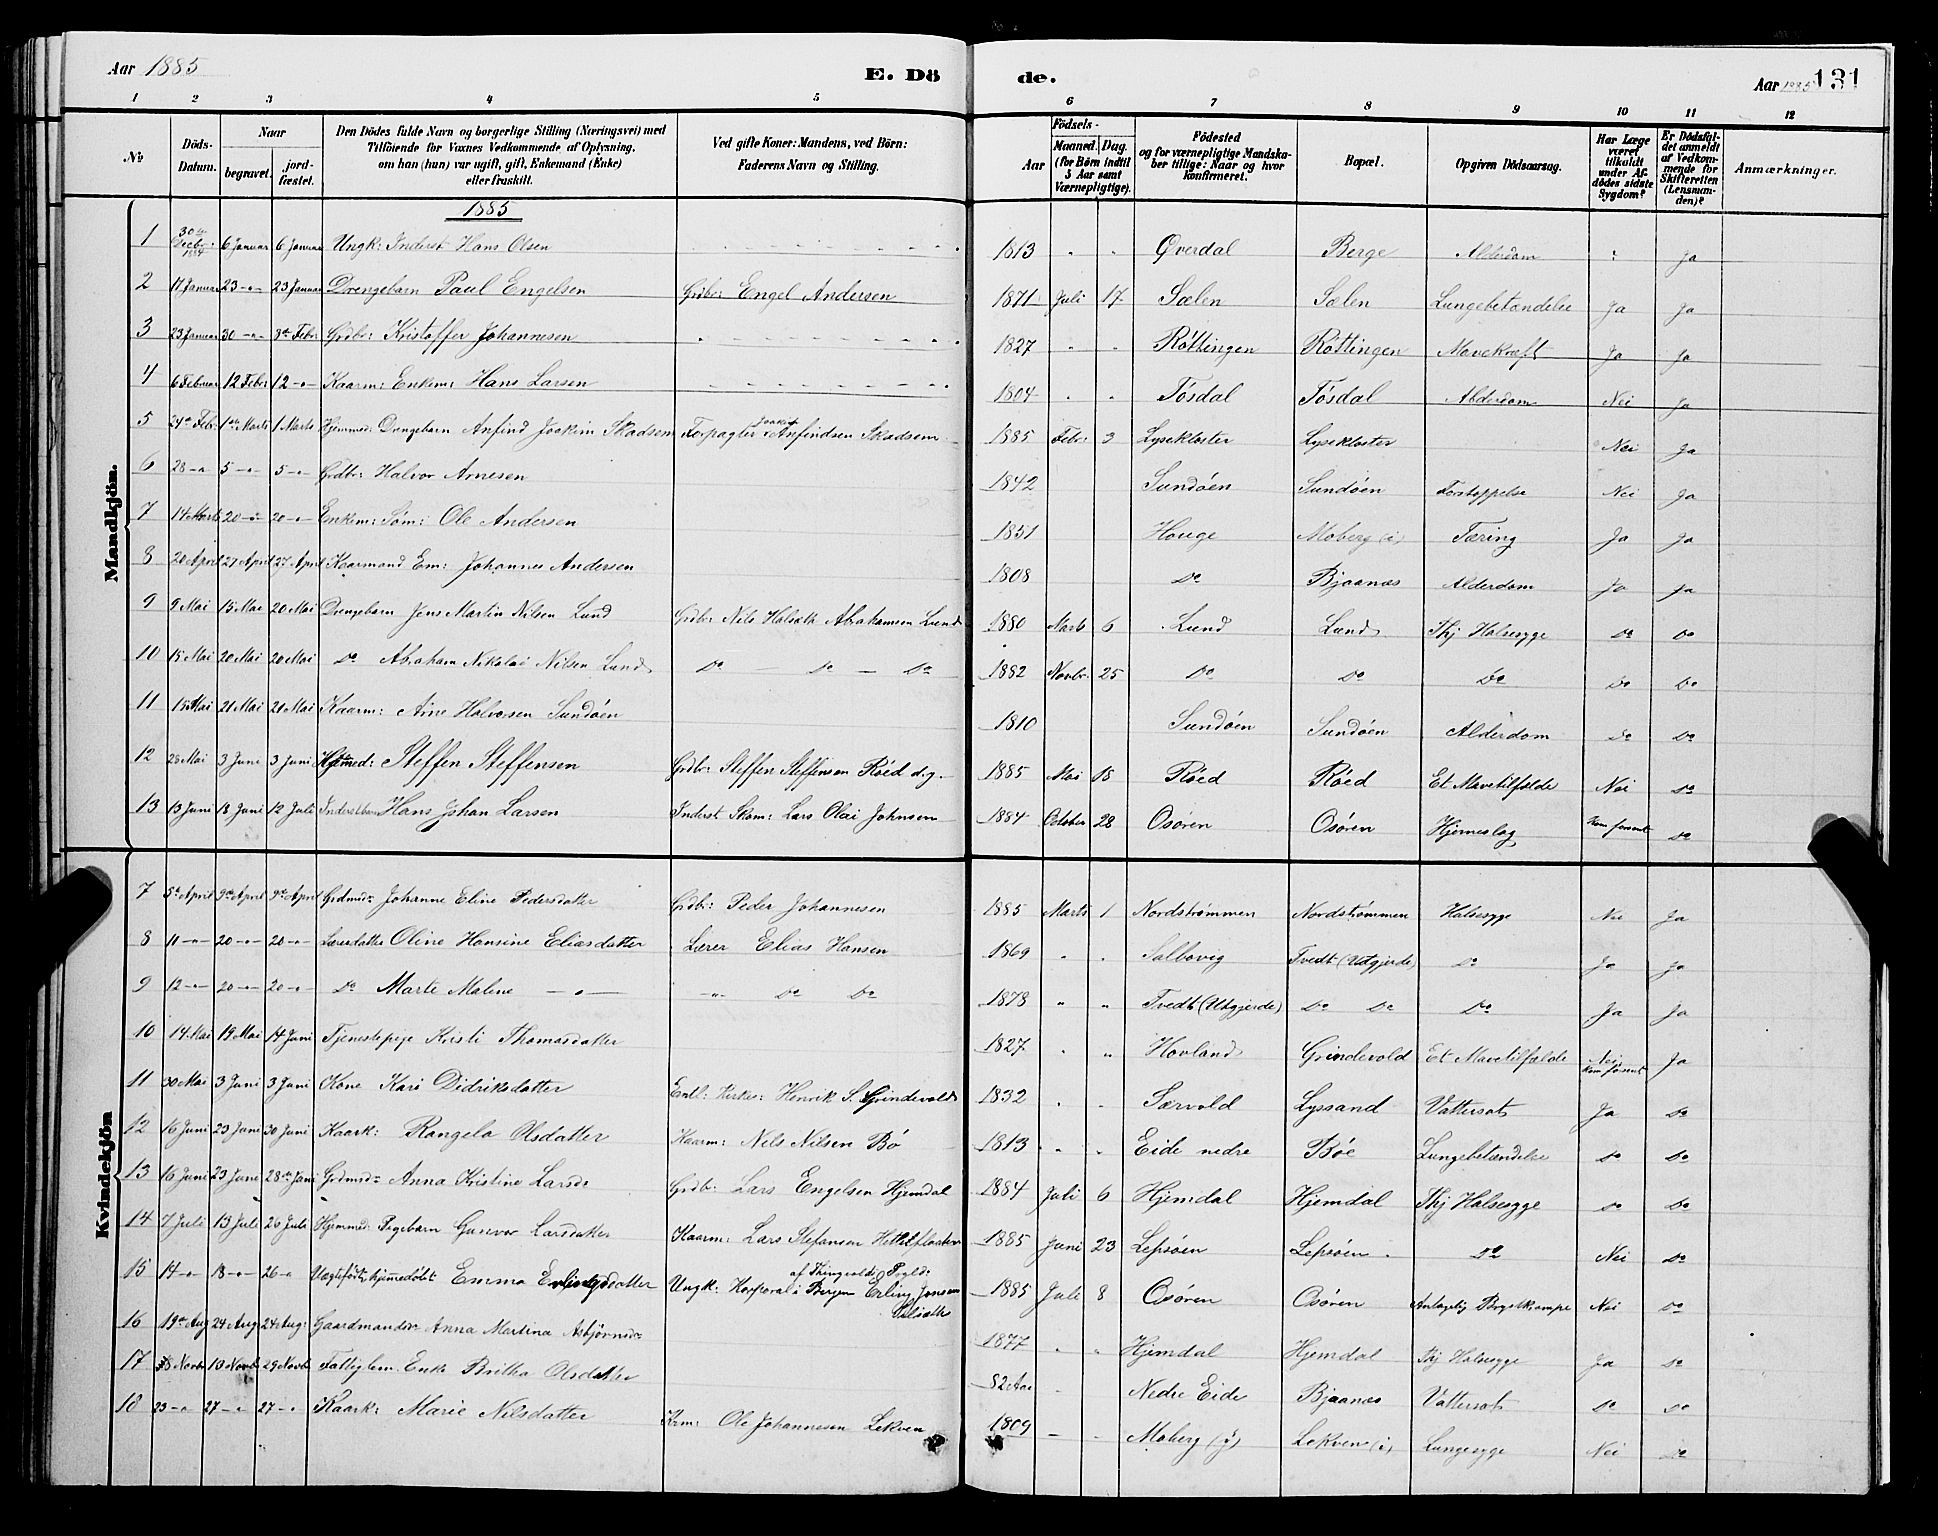 Aar 1885 E. Dö de. Aar 1885 131
1 2 3 4 5 6 7 8 9 10 11 12
№ Döds-Datum. Naar begravet. jord-fæstet. Den Dödes fulde Navn og borgerlige Stilling (Næringsvei) med Tilföiende for Voxnes Vedkommende af Oplysning, om han (hun) var ugift, gift, Enkemand (Enke) eller fraskilt. Ved gifte Koner: Mandens, ved Börn: Faderens Navn og Stilling. Födsels- Aar Maaned. Dag. (for Börn indtil 3 Aar samt Værnepligtige). Födested og for værnepligtige Mandskaber tillige: Naar og hvor konfirmeret. Bopæl. Opgiven Dödsaarsag. Har Læge været tilkaldt under Afdödes sidste Sygdom? Er Dödsfaldet anmeldt af Vedkommende for Skifteretten (Lensmanden)? Anmærkninger.
Mandkjön.
1885
1 30te Decbr. 1884 6 Januar 6 Januar Ungk: Inderst Hans Olsen 1813 " " Øverdal Berge Alderdom " Ja
2 17 Januar 23 -"- 23 Januar Drengebarn Paul Engelsen Grdbr: Engel Andersen 1871 Juli 17 Sælen Sælen Lungebetændelse Ja Ja
3 23 Januar 30 -"- 8de Febr Grdbr: Kristoffer Johannesen 1827 " " Røttingen Røttingen Mavekræft Ja Ja
4 6 Februar 12 Febr 12 -"- Kaarm: Enkem: Hans Larsen 1804 " " Tøsdal Tøsdal Alderdom Nei Ja
5 24de Feb: 1ste Marts 1 Marts Hjemmed: Drengebarn Anfind Joakim Skadsem Forpagter Joakim Anfindsen Skadsem 1885 Febr 3 Lysekloster Lysekloster Nei Ja
6 28 -"- 5 -"- 5 -"- Grdbr: Halvor Arnesen 1842 Sundøen Sundøen Forstoppelse Nei Ja
7 14 Marts 20 -"- 20 -"- Enkem: Søm: Ole Andersen 1851 Houge Moberg (i) Tæring Ja Ja
8 20 April 27 April 27 April Kaarmand Em: Johannes Andersen 1808 Do Bjaanæs Alderdom Ja Ja
9 9 Mai 15 Mai 20 Mai Drengebarn Jens Martin Nilsen Lund Grdbr: Nils Abrahamsen Lund 1880 Marts 6 Lund Lund Thj Halsesyge Do Do
10 15 Mai 20 Mai 20 Mai Do Abraham Nikolai Nilsen Lund Do — Do — Do 1882 Novbr. 25 Do Do Do Do Do
11 15 Mai 21 Mai 21 Mai Kaarm: Arne Halvorsen Sundøen 1810 Sundøen Sundøen Alderdom Do Do
12 28 Mai 3 Juni 3 Juni Hjemmed: Steffen Steffensen Grdbr: Steffen Steffensen Røed d.y. 1885 Mai 15 Røed Røed Et Mavetilfælde Nei Do
13 13 Juni 18 Juni 12 Juli Inderstbarn Hans Johan Larsen Inderst Skom: Lars Olai Johnsen 1884 October 28 Osøren Osøren Hjerneslag Kom forsent Do
Kvindekjön
7 5te April 9de April 9de April Grdmds: Johanne Eline Pedersdatter Grdbr: Peder Johannesen 1885 Marts 1 Nordstrømmen Nordstrømmen Halsesyge Nei Ja
8 11 -"- 20 -"- 20 -"- Lærerdatter Oline Hansine Eliasdatter Lærer Elias Hansen 1869 " " Salbovig Tvedt (Utgjerde) Do Ja Ja
9 12 -"- 20 -"- 20 -"- Do Marte Malene —"— -"- Do Do 1878 " " Tvedt (Utgjerde) Do Do Do Ja Ja
10 14 Mai 19 Mai 14 Juni Tjenestepige Kristi Thomasdatter 1827 " " Hovland Grindevold Et Mavetilfælde Nei kom forsent Ja
11 30 Mai 3 Juni 3 Juni Kone Kari Didriksdatter Henrik S. Grindevold 1832 " " Særvold Lyssand Vattersot Ja Do
12 16 Juni 23 Juni 30 Juni Kaark: Rangela Olsdatter Kaarm: Nels Nilsen Bø 1813 " " Eide nedre Bøe Lungebetændelse Do Do
13 16 Juni 23 Juni 28de Juni Grdmds: Anna Kristine Larsdr Grdb: Lars Engelsen Hjemdal 1884 Juli 6 Hjemdal Hjemdal Thj Halsesyge Do Do
14 7 Juli 13 Juli 26 Juli Hjemmed: Pigebarn Gunvor Larsdatter Kaarm: Lars Stefansen 1885 Juni 23 Lepsøen Lepsøen Do Nei Do
15 14 -"- 18 -"- 26 -"- Uægtefødt, hjemmedøbt Emma Erlingsdatter Ungk: Korporal i Bergen Erling Jensen 1885 Juli 8 Osøren Osøren Antagelig Brystkrampe Nei Do
16 19de Aug 24 Aug 24 Aug: Gaardmandsdr Anna Martina Asbjørnsdr 1877 " " Hjemdal Hjemdal Thj Halsesyge Ja Do
17 8 Novbr 13 Novbr 29 Novbr Fattiglem Enke Britha Olsdatter 82 Aar " Nedre Eide Bjaanæs Vattersot Do Do
18 23 -"- 27 -"- 27 -"- Kaark: Marie Nilsdatter Krm: Ole Johannesen Lekven 1809 — " Moberg (y) Lekven (i) Lungesyge Nei Do